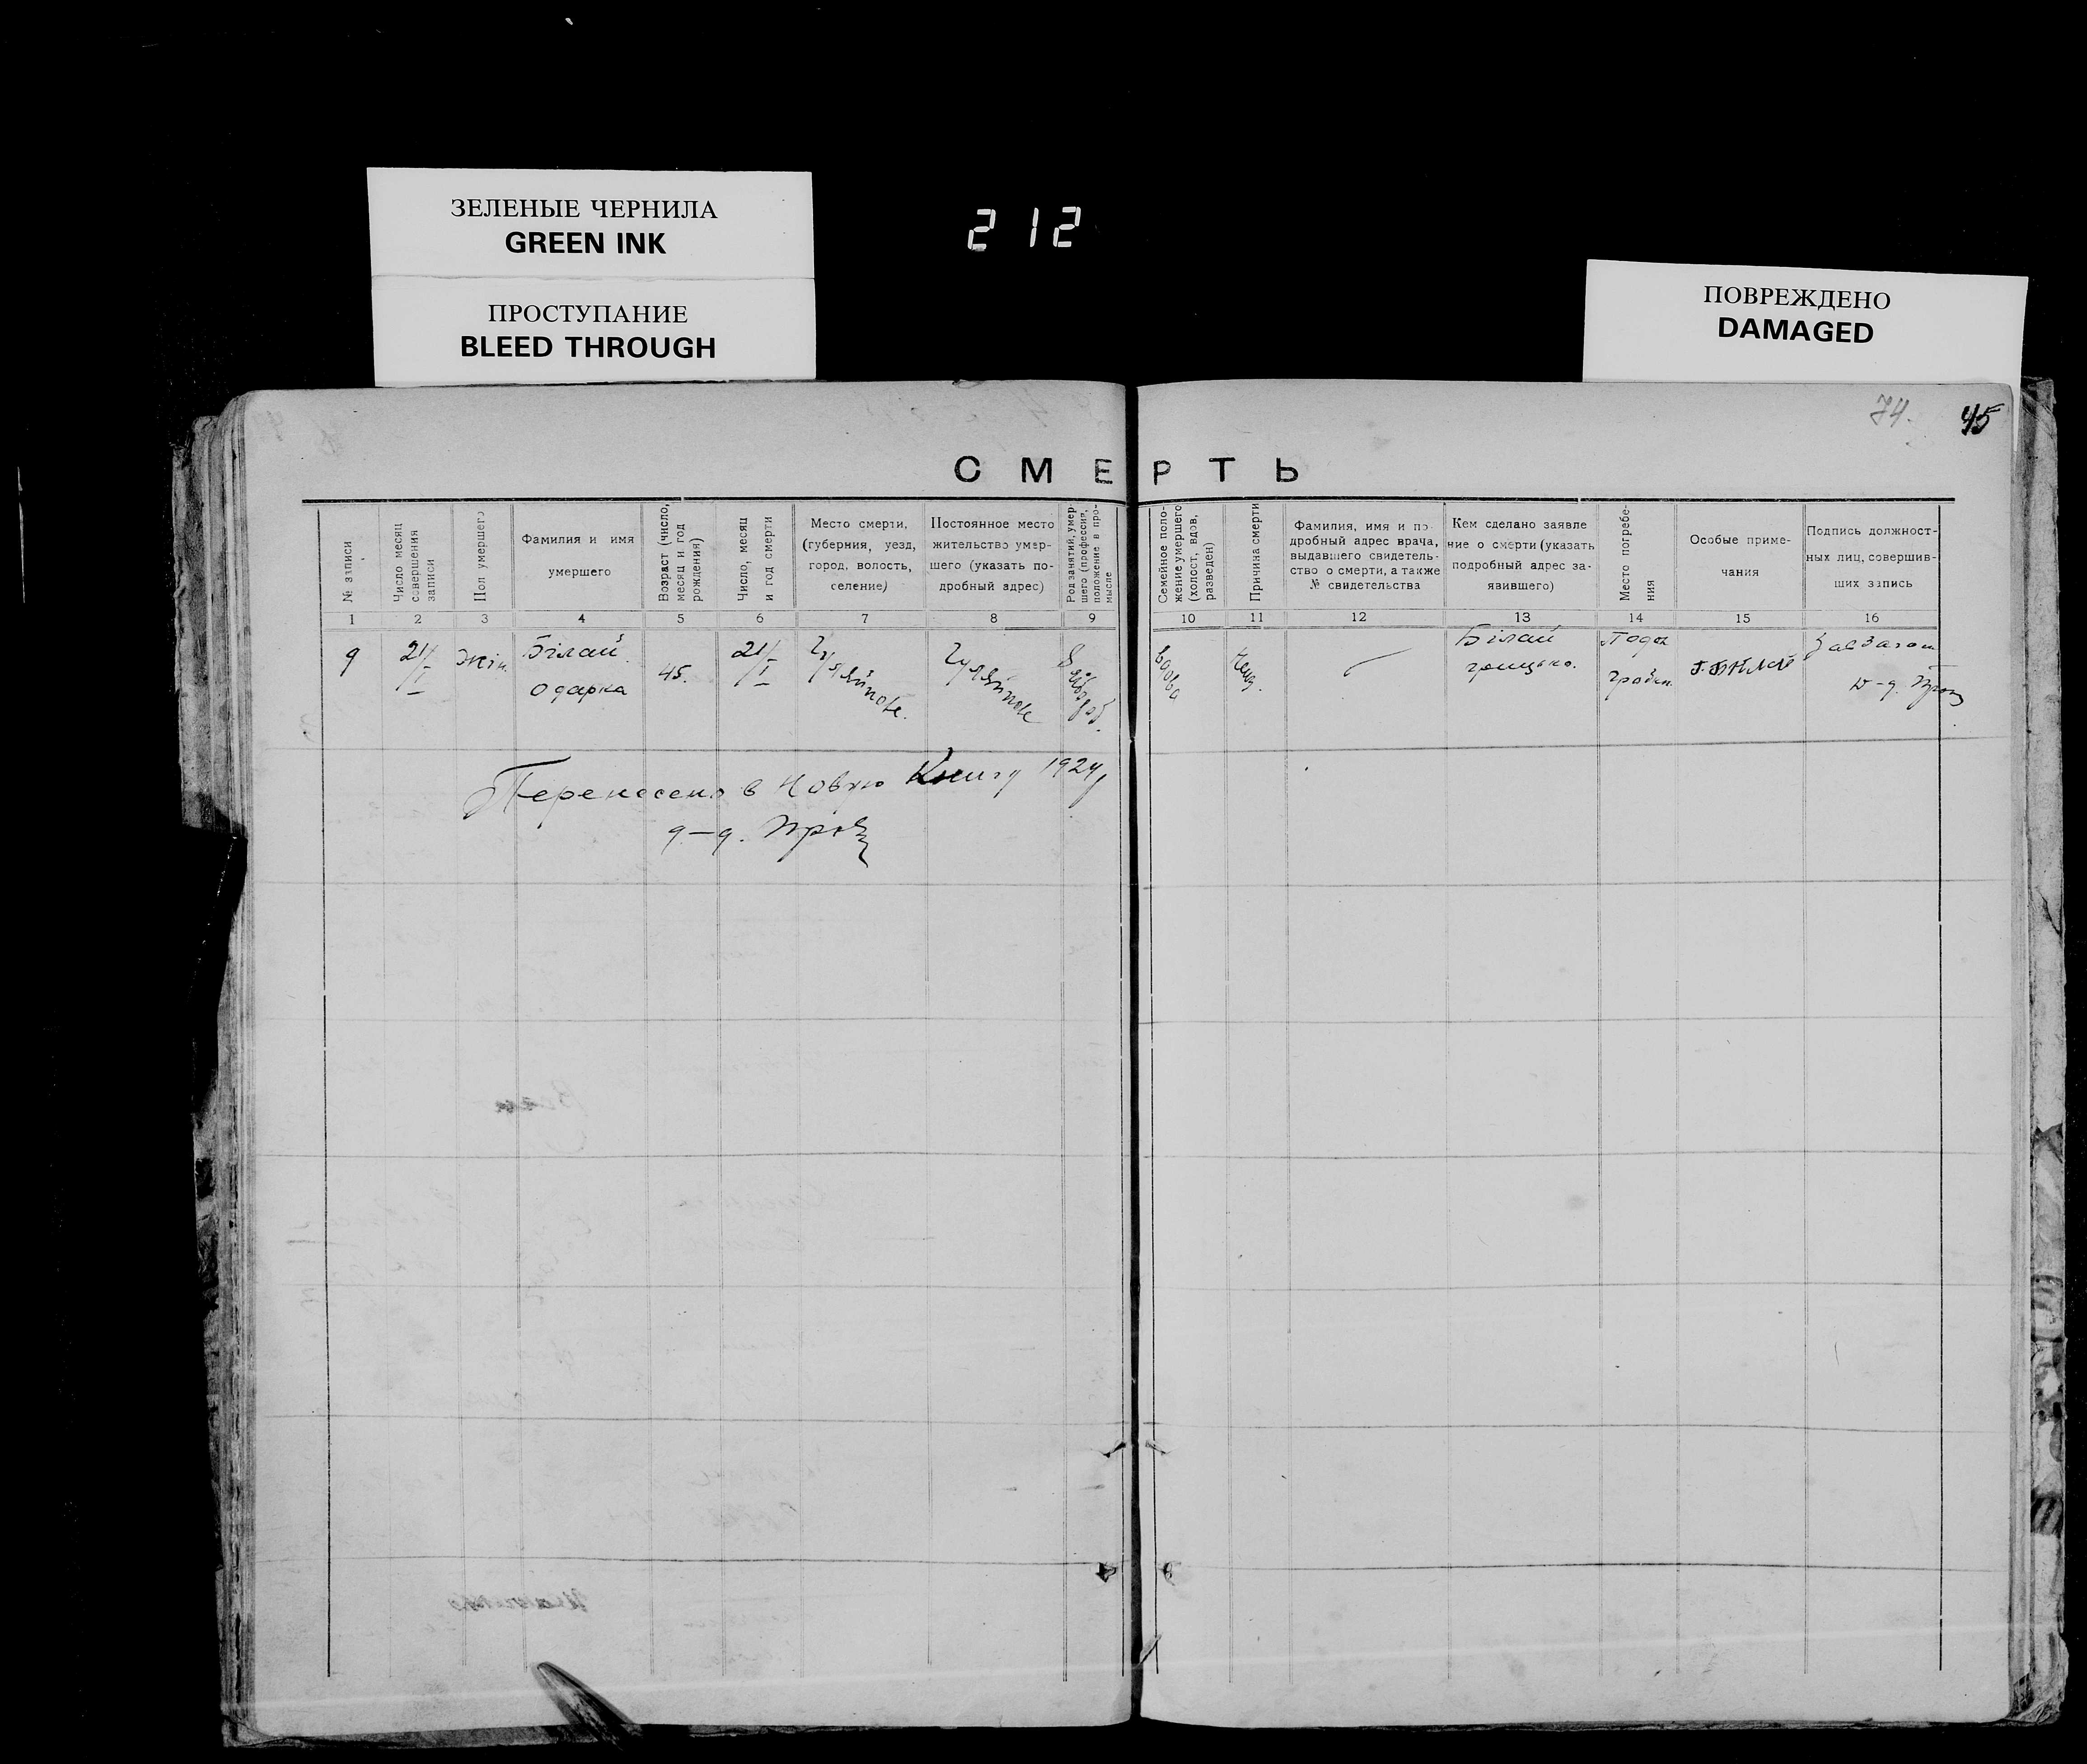 ЗЕЛЕНЫЕ ЧЕРНИЛА
GREEN INK
ПРОСТУПАНИЕ
BLEED THROUGH
212
ПОВРЕЖДЕНО
DAMAGED
74.
45
СМЕРТЬ
№ записи
Число месяц
совершения
записи
Пол умершего
Фамилия и имя
умершего
Возраст (число,
месяц и год
рождения)
Число, месяц
и год смерти
Место смерти,
(губерния, уезд,
город, волость,
селение)
Постоянное место
жительство умер-
шего (указать по-
дробный адрес)
Род занятий, умер-
шего (профессия,
положение в про-
мысле
Семейное поло-
жение умершего
(холост, вдов,
разведен)
Причина смерти
Фамилия, имя и по-
дробный адрес врача,
выдавшего свидетель-
ство о смерти, а также
№ свидетельства
Кем сделано заявле
ние о смерти (указать
подробный адрес за-
явившего)
Место погребе-
ния
Особые приме-
чания
Подпись должност-
ных лиц, совершив-
ших запись
1 2 3 4 5 6 7 8 9 10 11 12 13 14 15 16
9
21/I
Жін.
Білай
Одарка
45.
21/I
вдова
Білай
грицько.
Перенесено в Новую Книгу 1924